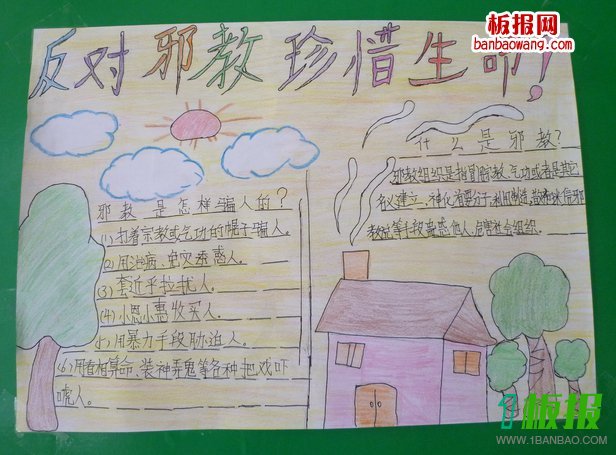 反对邪教珍惜生命!
板报网
banbaowang.com
邪教是怎样骗人的?
(1)打着宗教或气功的帽子骗人。
(2)用治病、免灾诱惑人。
(3)套近乎拉扰人。
(4)小恩小惠收买人。
用暴力手段胁迫人。
(6)用看相算命、装神弄鬼等各种把戏吓
唬人。
什么是邪教?
邪教组织是指冒用宗教、气功或者是其它
名义建立、神化首要分子,利用制造、散布迷信邪
教说等手段蛊惑他人,危害社会组织。
板报
WWW.1BANBAO.COM